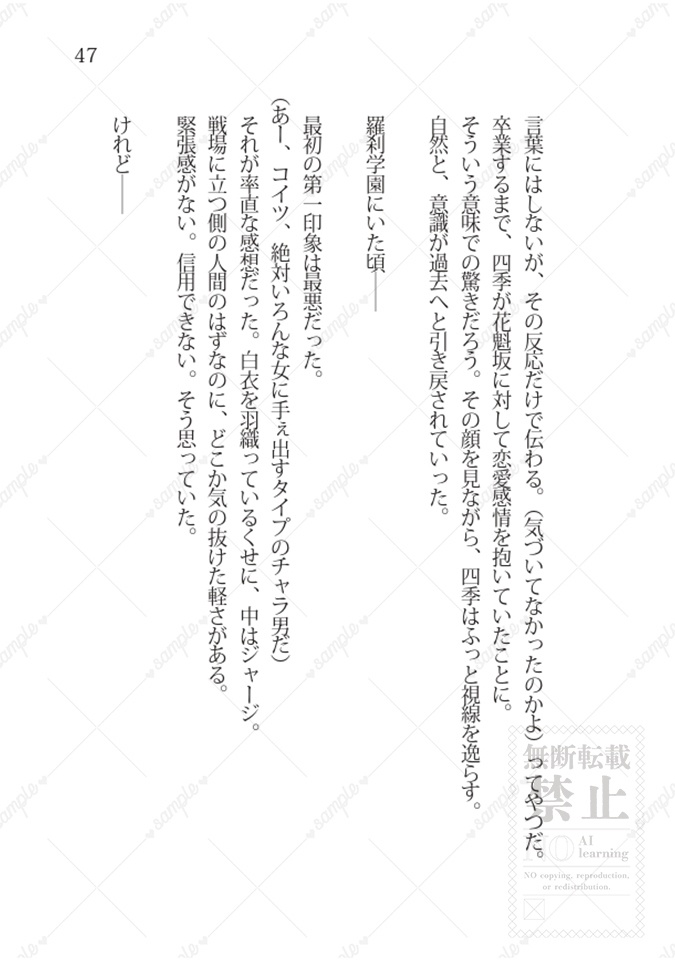 47
言葉にはしないが、その反応だけで伝わる。（気づいてなかったのかよ）ってやつだ。
卒業するまで、四季が花魁坂に対して恋愛感情を抱いていたことに。
そういう意味での驚きだろう。その顔を見ながら、四季はふっと視線を逸らす。
自然と、意識が過去へと引き戻されていった。
羅刹学園にいた頃――
最初の第一印象は最悪だった。
（あー、コイツ、絶対いろんな女に手ぇ出すタイプのチャラ男だ）
それが率直な感想だった。白衣を羽織っているくせに、中はジャージ。
戦場に立つ側の人間のはずなのに、どこか気の抜けた軽さがある。
緊張感がない。信用できない。そう思っていた。
けれど――
無断転載
禁止
NO AI learning
NO copying, reproduction,
or redistribution.
sample